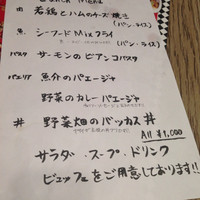 若鶏とハムのチーズ焼き
(パン・ライス)
魚 シーフードMixフライ
(パン・ライス)
パスタ サーモンのビアンコパスタ
パエリア 魚介のパエージャ
野菜のカレーパエージャ
井 野菜畑のバッカス 井
All ¥1,000
サラダ・スープ・ドリンク
ビュッフェをご用意しております!!